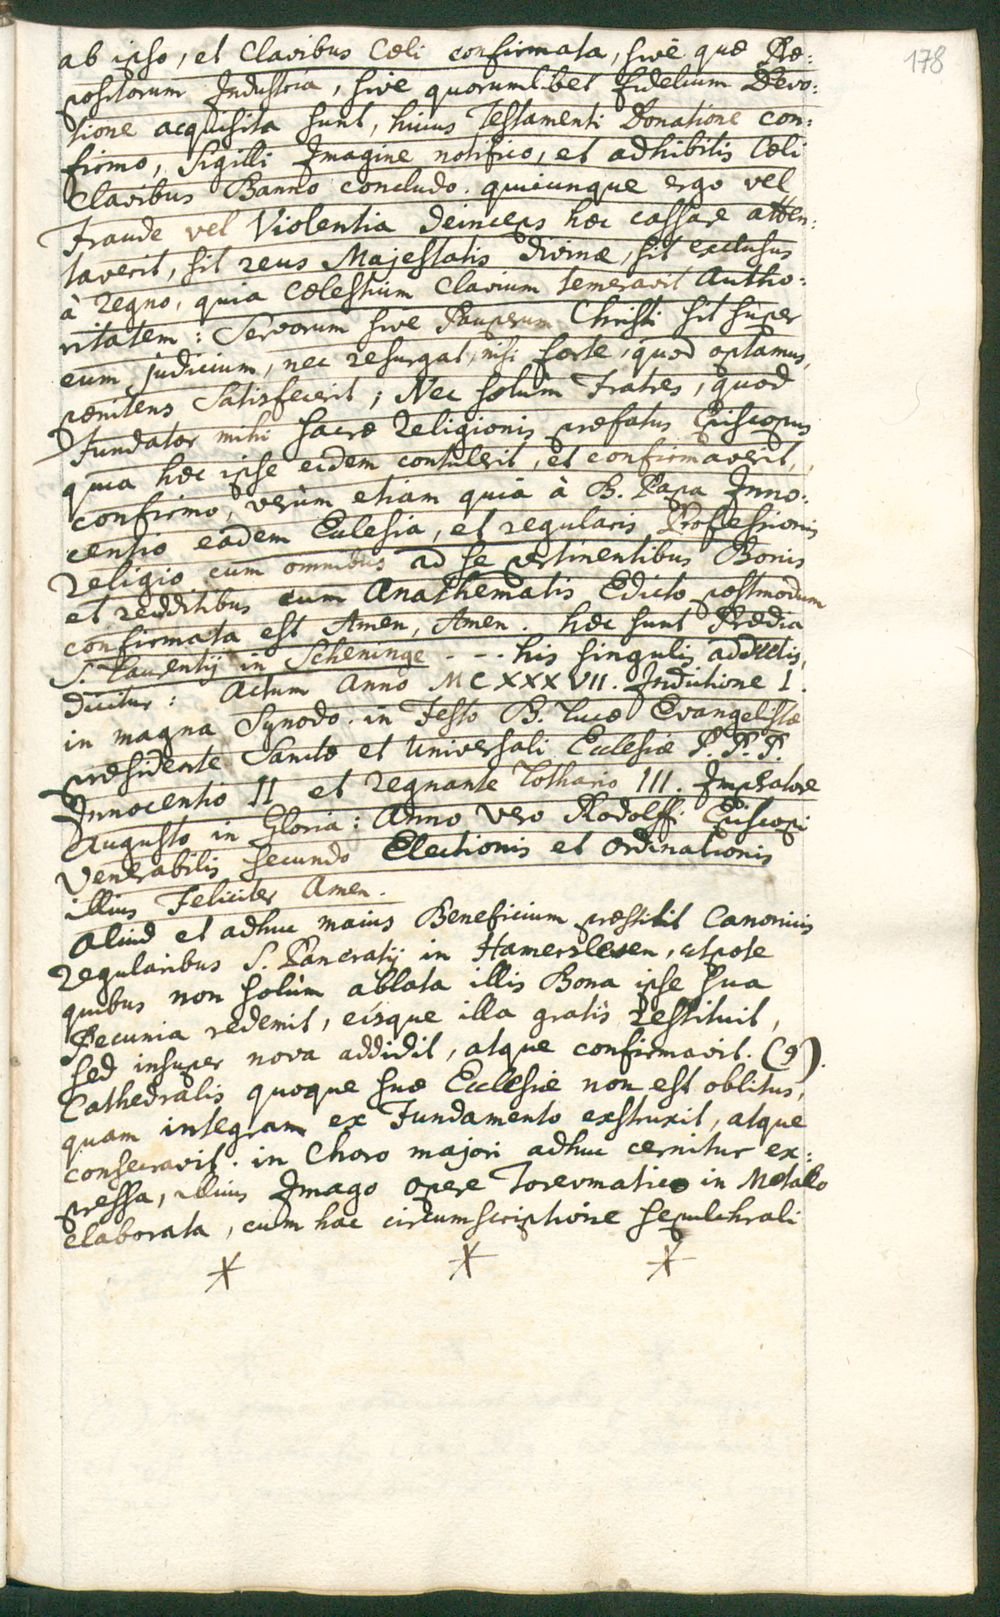 178
ab ipso, et Clavibus Cœli confirmata, sive quæ Præ:
positorum Industria, sive quorumlibet fidelium Devo:
tione acquisita sunt, huius Testamenti Donatione con:
firmo, Sigilli Imagine notifico, et adhibitis Cœli
Clavibus Banno concludo. quicunque ergo vel
Fraude vel Violentia deinceps hæc cassare atten:
taverit, sit reus Majestatis divinæ, sit exclusus
à regno, quia Cœlestium Clavium temeravit Autho:
ritatem: Servorum sive Pauperum Christi sit super
eum judicium, nec resurgat, nisi forte, quod optamus,
pœnitens Satisfecerit; Nec solùm Fratres, quod
Fundator mihi sacræ Religionis præfatus Episcopus
quia hæc ipse eidem contulerit, et confirmaverit,
confirmo, verùm etiam quia à B. Papa Inno:
centio eadem Ecclesia, et regularis Professionis
religio cum omnibus ad se pertinentibus Bonis
et redditibus cum Anathematis Edicto postmodum
confirmata est Amen, Amen. hæc sunt Prædia
S. Laurentij in Scheninge - - - his singulis adductis,
dicitur: Actum Anno MCXXXVII. Indictione I.
in magna Synodo. in Festo B. Lucæ Evangelistæ
præsidente Sanctæ et Universali Ecclesiæ P. P. P.
Innocentio II et regnante Lothario III. Imperatore
Augusto in Gloria: Anno vero Rodolffi Episcopi
Venerabilis secundo Electionis et Ordinationis
illius Feliciter Amen.
Aliud et adhuc maius Beneficium præstitit Canonicis
regularibus S. Pancratij in Hamersleven, utpote
quibus non solùm ablata illis Bona ipse sua
Pecunia redemit, eisque illa gratis restituit,
sed insuper nova addidit, atque confirmavit. (9).
Cathedralis quoque suæ Ecclesiæ non est oblitus,
quam integram ex Fundamento exstruxit, atque
consecravit. in Choro majori adhuc cernitur ex:
pressa, illius Imago opere Toreumatico in Metallo
elaborata, cum hac circumscriptione sepulchrali
* * *